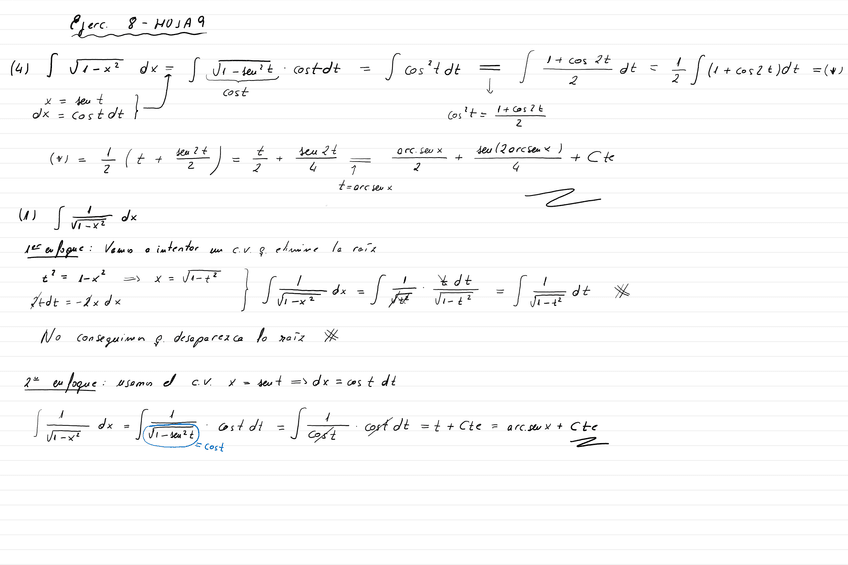 Ejerc. 8 - HOJA 9
(4) ∫ √(1-x²) dx = ∫ √(1-sen²t) · cost dt = ∫ cos²t dt = ∫ (1+cos 2t)/2 dt = 1/2 ∫ (1+cos2t)dt = (*)
cost
x = sen t
dx = cost dt
cos²t = (1+cos2t)/2
(*) = 1/2 (t + sen2t/2) = t/2 + sen2t/4 = arc.senx/2 + sen(2arcsenx)/4 + Cte
t = arc senx
(1) ∫ 1/√(1-x²) dx
1er enfoque: Vamos a intentar un c.v. q. elimine la raíz
t² = 1-x² ⇒ x = √(1-t²)
2tdt = -2x dx
∫ 1/√(1-x²) dx = ∫ 1/√t² · t dt/√(1-t²) = ∫ 1/√(1-t²) dt ※
No conseguimos q. desaparezca la raíz ※
2º enfoque: usamos el c.v. x = sen t ⇒ dx = cos t dt
∫ 1/√(1-x²) dx = ∫ 1/√(1-sen²t) · cost dt = ∫ 1/cost · cost dt = t + Cte = arc.senx + Cte
= cost